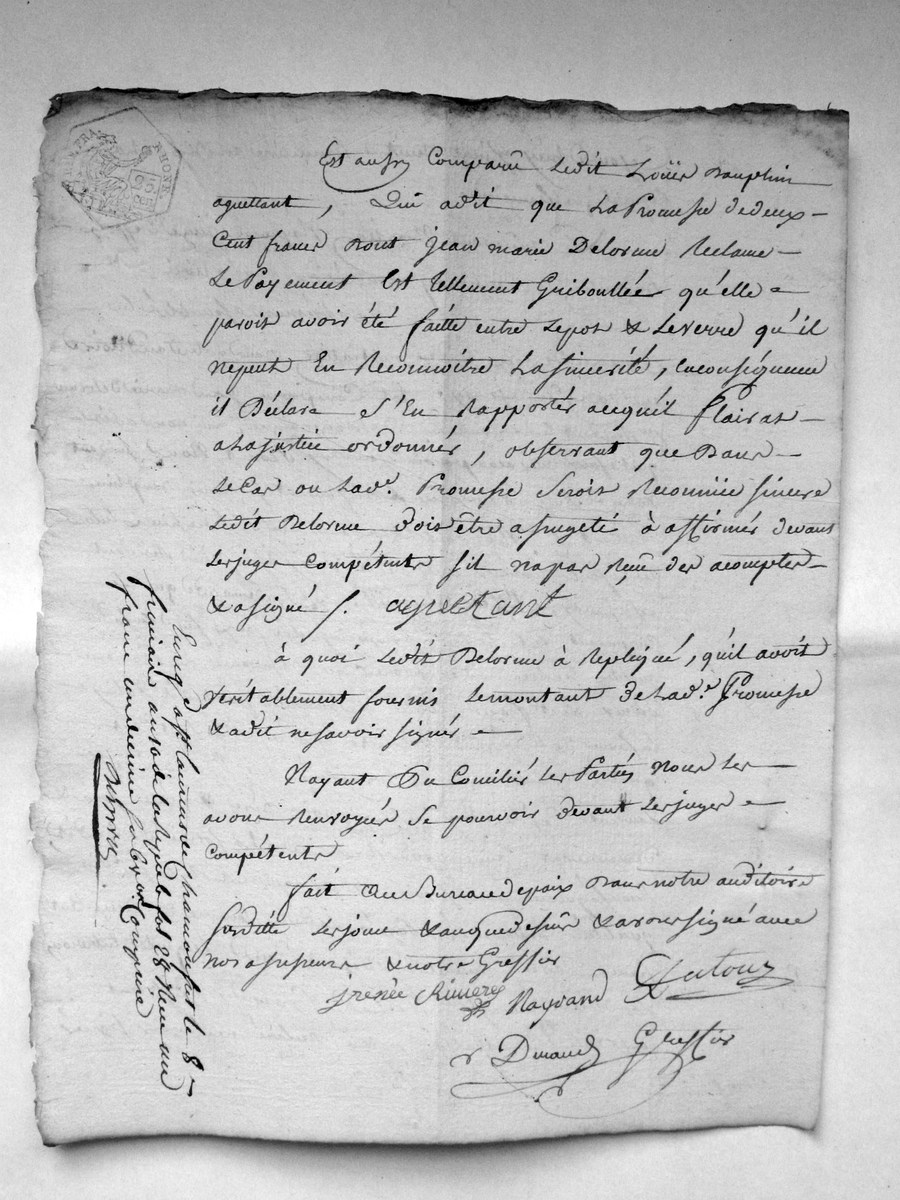 Est aussy Comparû Ledit Loüis Dauphin
aguettant, Qui adit que La Promesse dedeux
Cent francs Dont jean marie Delorme Reclame
Le Payement Est tellement Gribouttée qu'elle
paroit avoir été faitte entre Lepot & Leverre qu'il
nepeut En Reconnoitre La sincerité, Enconséquence
il Déclare S'En Rapportér acequil Plairat
a Lajustice ordonnér, observant que Dans
Le Cas ou Lade. Promesse Seroit Reconnüe sincere
Ledit Delorme Doit être assugeté à affirmér devant
Les juges Compétents sil napas Reçû des acomptes
& asigné /. aguettant
à quoi Ledit Delorme à Repliqué, quil avoit
véritablement fournis Lemontant De Lade. Promesse
& adit nesavoir signér
Nayant Pu Conciliér Les Parties Nous Les
avons Renvoyées Se pourvoir devant Lesjuges
Compétents
fait au Bureau depaix Dans notre auditoire
susditte Lesjour & anquedessus & avons signé avec
Nos assesseurs & notre Greffier
jrenée Riviere Nayrand Dutour
Durand Greffier
Enreg. a St Laurent de Chamousset le 8
francais an
franc